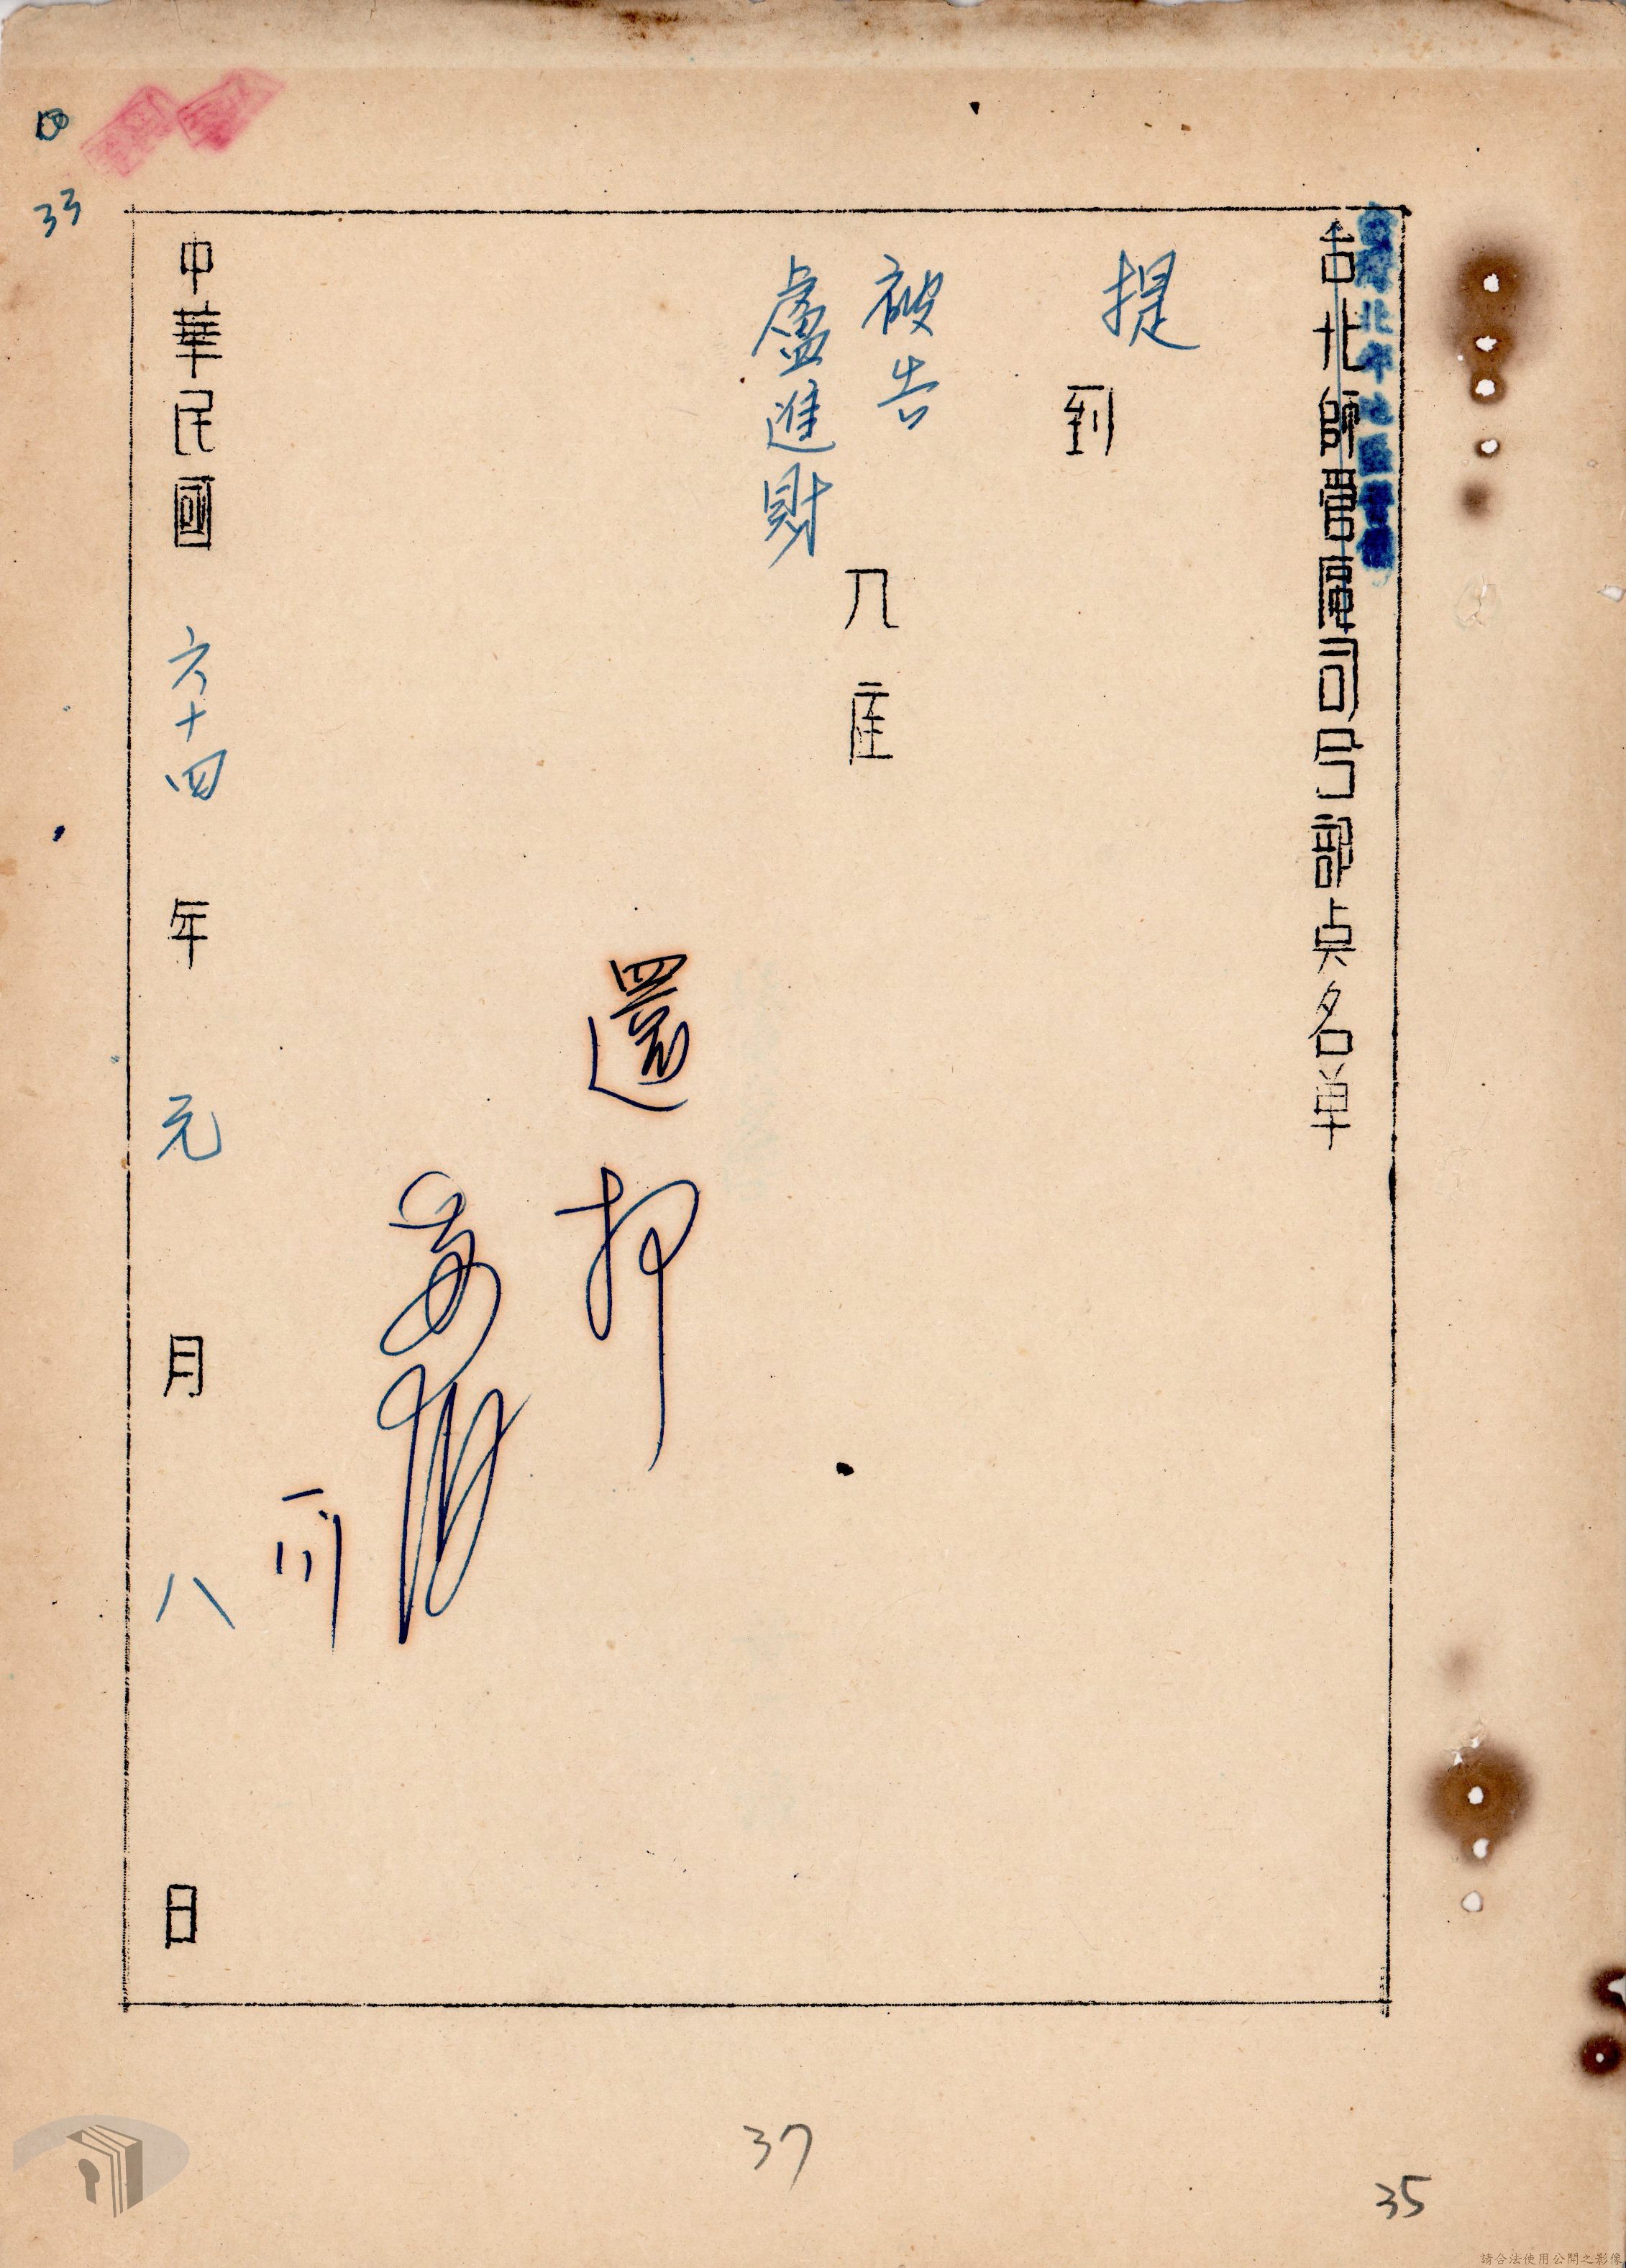 台北師管區司令部点名单
提
到
被告
盧進財
入庭
還押
中華民國六十四年元月八日
33
37
35
請合法使用公開之影像